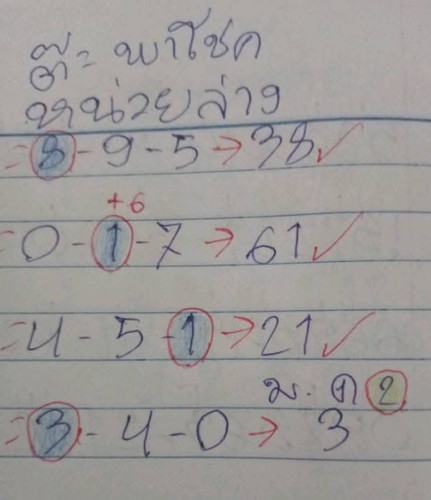 ต๊ะ พาโชค
หน่วยล่าง
= 8 - 9 - 5 → 38 ✓
+6
= 0 - 1 - 7 → 61 ✓
= 4 - 5 - 1 → 21 ✓
ม. ๑ 2
= 3 - 4 - 0 → 3